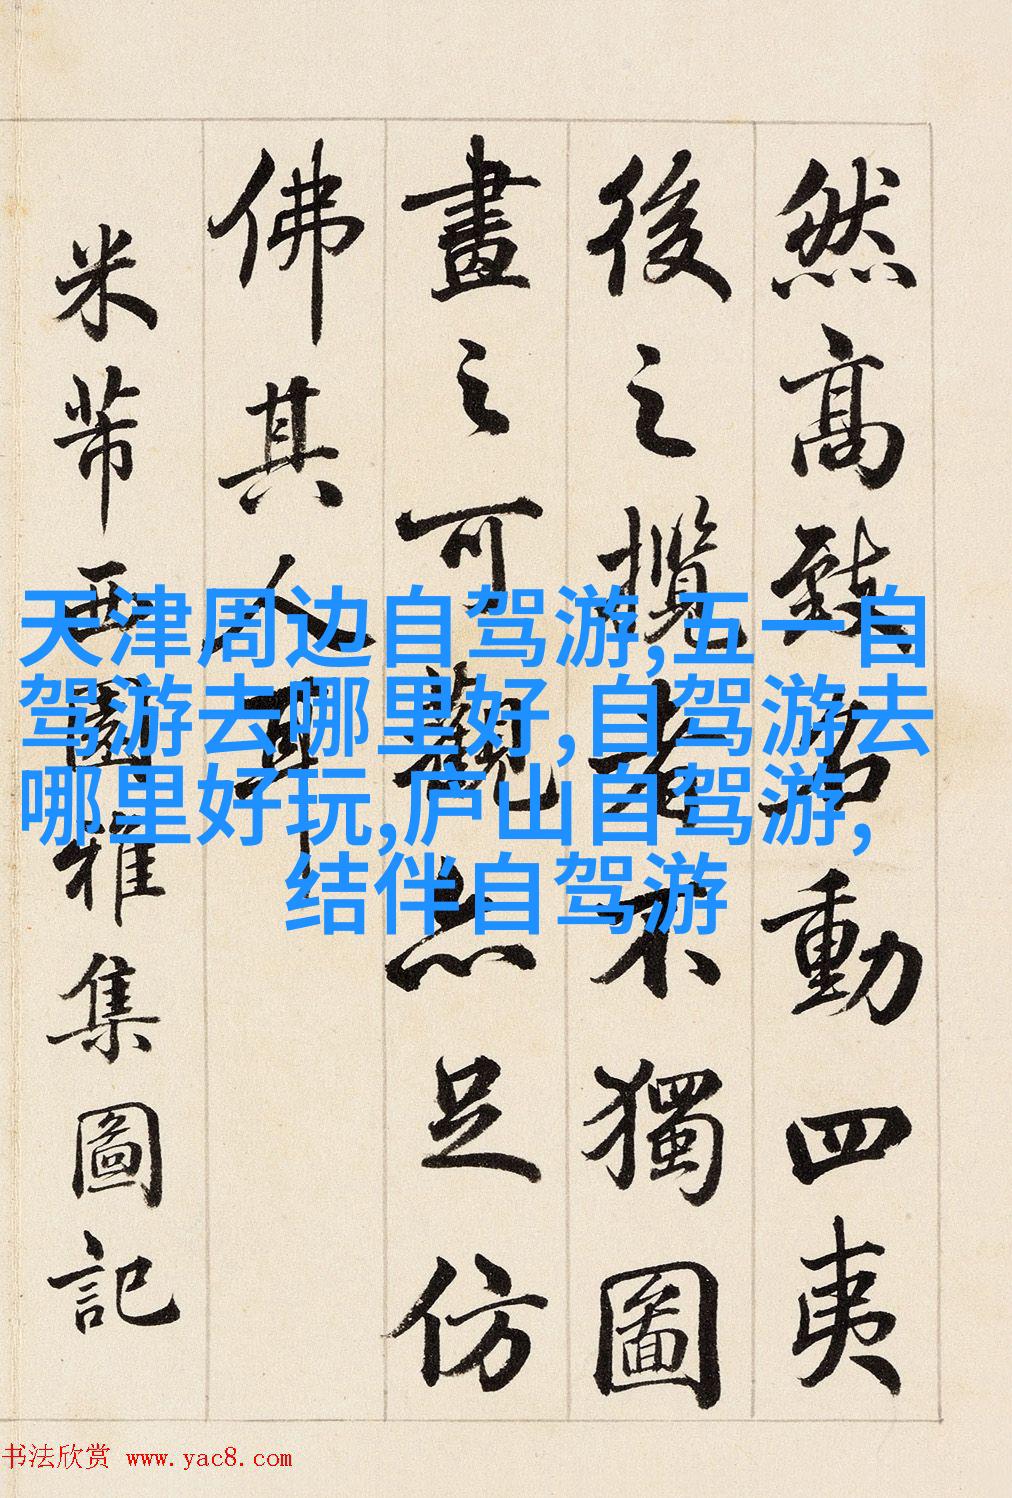 然高致名動四夷
後之攬者不獨圖
畫之可觀亦足仿
佛其人耳
米芾西園雅集圖記
天津周边自驾游,五一自
驾游去哪里好,自驾游去
哪里好玩,庐山自驾游,
结伴自驾游
书法欣赏 www.yac8.com